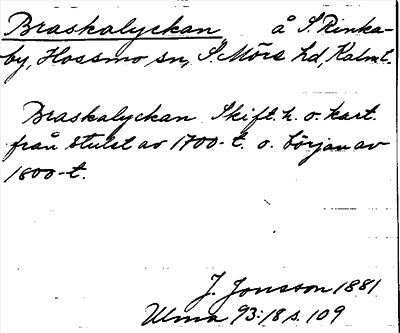 Braskalyckan å S. Rinka-
by, Hossmo sn, S. Möre hd, Kalm.l.
Braskalyckan Skift. h. o. kart.
från slutet av 1700-t. o. början av
1800-t.
J. Jonsson 1881
Ulma 93:18 s. 109